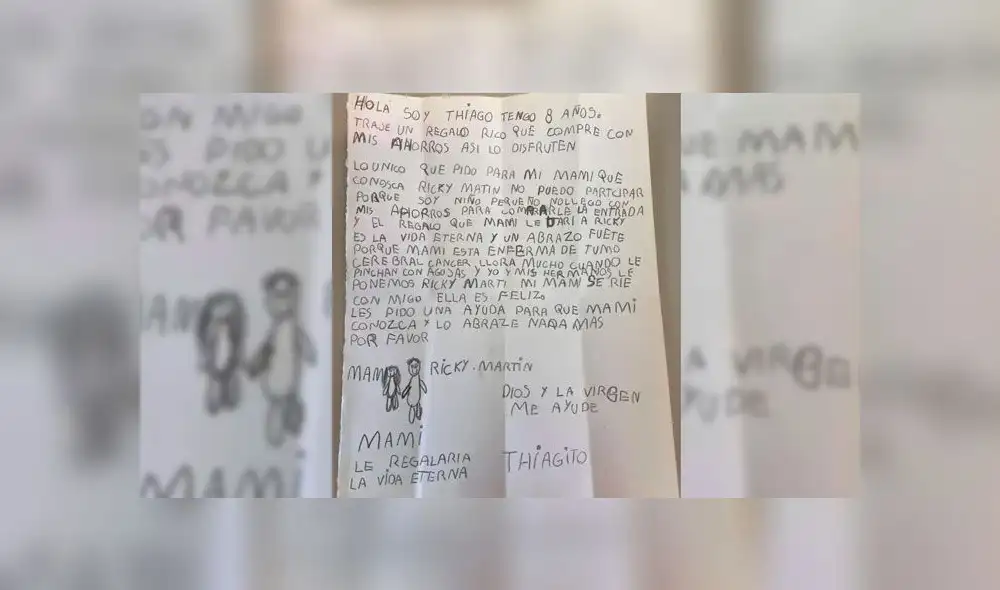 HOLA SOY THIAGO TENGO 8 AÑOS.
TRAJE UN REGALO RICO QUE COMPRE CON
MIS AHORROS ASI LO DISFRUTEN
LO UNICO QUE PIDO PARA MI MAMI QUE
CONOSCA RICKY MATIN NO PUEDO PARTCIPAR
PORQUE SOY NIÑO PEQUEÑO NOLLEGO CON
MIS AHORROS PARA COMPRARLE LA ENTRADA
Y EL REGALO QUE MAMI LE DARIA A RICKY
ES LA VIDA ETERNA Y UN ABRAZO FUETE
PORQUE MAMI ESTA ENFERMA DE TUMO
CEREBRAL CANCER LLORA MUCHO CUANDO LE
PINCHAN CON AGUJAS Y YO Y MIS HERMANOS LE
PONEMOS RICKY MARTI MI MAMI SE RIE
CON MIGO ELLA ES FELIZ.
LES PIDO UNA AYUDA PARA QUE MAMI
CONOZCA Y LO ABRAZE NADA MAS
POR FAVOR
MAMI RICKY.MARTIN
DIOS Y LA VIRGEN
ME AYUDE
MAMI
LE REGALARIA
LA VIDA ETERNA
THIAGITO